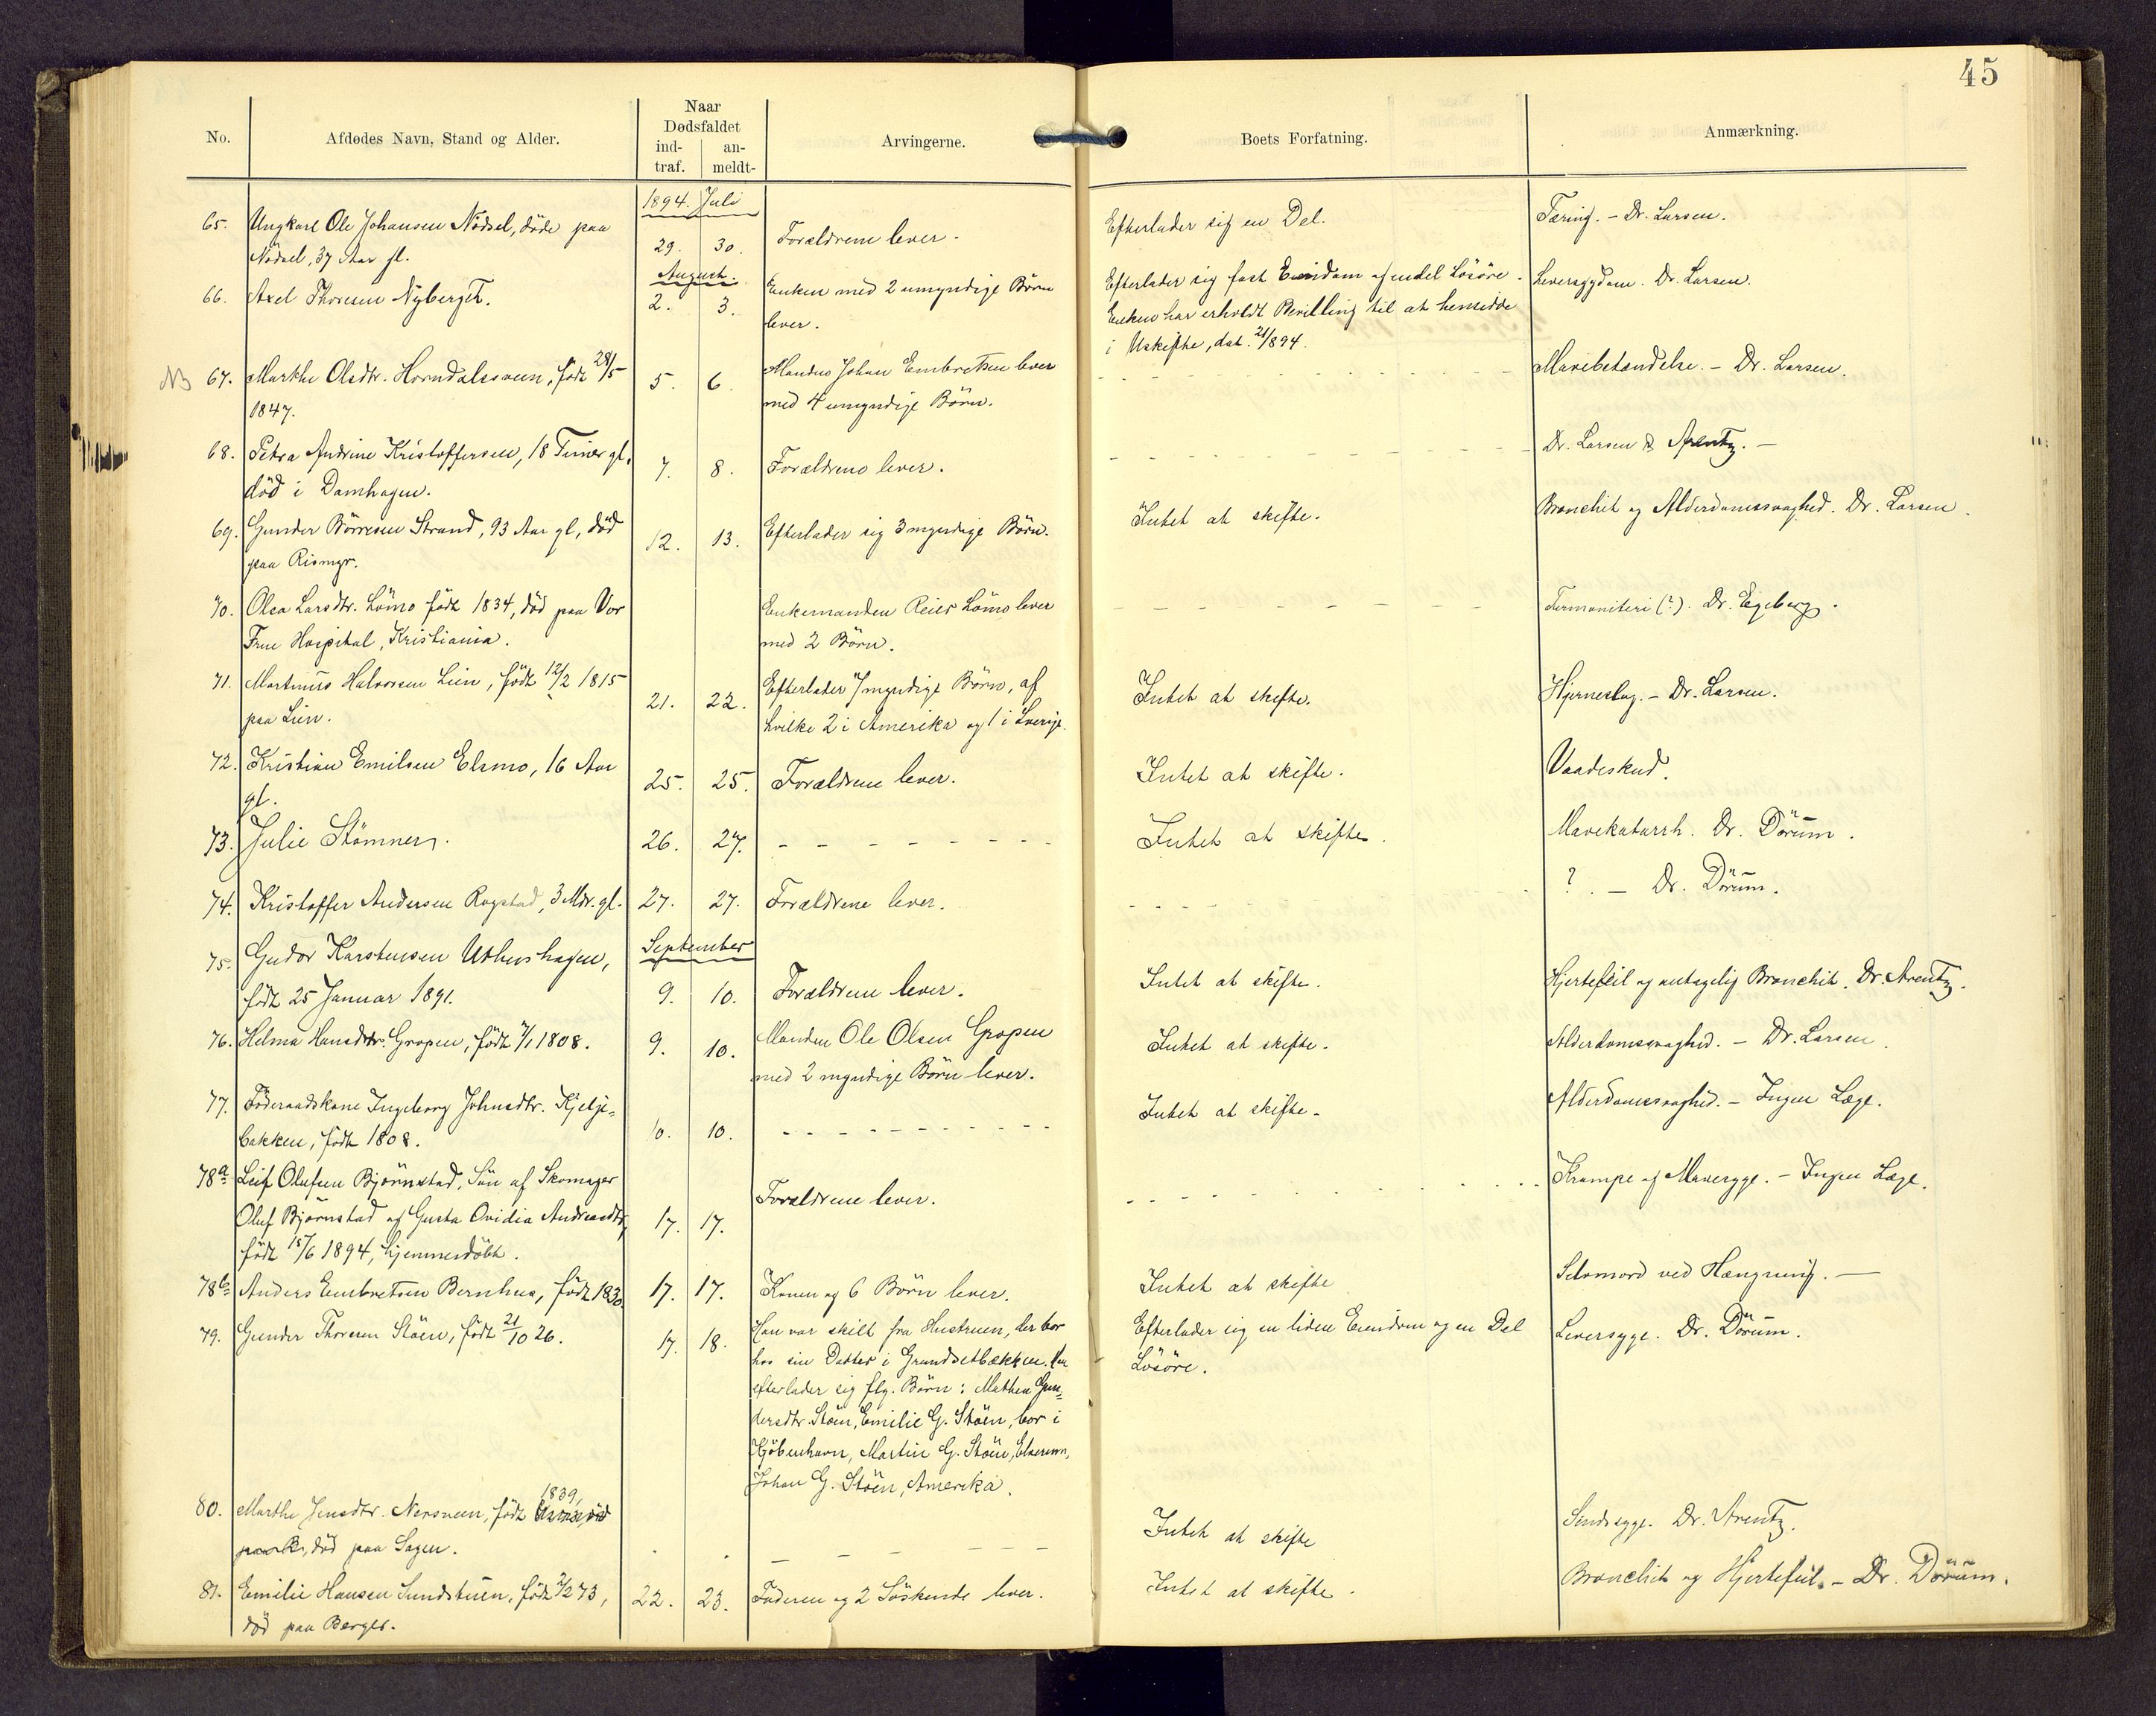 45
No.
Afdødes Navn, Stand og Alder.
Naar
Dødsfaldet
ind-
traf.
an-
meldt-
Arvingerne.
Boets Forfatning.
Anmærkning.
1894. Juli
65. Ungkarl Ole Johansen Nödsel, döde paa 29. 30. Forældrene lever. Efterlader sig en Del. Tæring. - Dr. Larsen.
Nödsel, 37 Aar gl.
August.
66. Axel Thoresen Nyberget. 2. 3. Enken med 2 umyndige Börn Efterlader sig fast Eiendom og endel Lösöre. Leversygdom. Dr. Larsen.
lever. Enken har erholdt Bevilling til at hensidde
i Uskifte, dat. 21/894.
NB 67. Marthe Olsdtr. Horndalsveen, födt 28/5 5. 6. Manden Johan Embretsen lever Mavebetændelse. - Dr. Larsen.
1847. med 4 umyndige Börn.
68. Petra Andrine Kristoffersen, 18 Timer gl, 7. 8. Forældrene lever. Dr. Larsen & Arentz. -
död i Damhagen.
69. Gunder Börresen Strand, 93 Aar gl, död 12. 13. Efterlader sig 3 myndige Börn. Intet at skifte. Bronchit og Alderdomssvaghed. Dr. Larsen.
paa Rismyr.
70. Olea Larsdtr. Lömo födt 1834, död paa Vor Enkemanden Reier Lömo lever (?). Dr. Egeberg.
Frue Hospital, Kristiania. med 2 Börn.
71. Martinus Halvorsen Lien, födt 12/2 1815 21. 22. Efterlader 7 myndige Börn, af Intet at skifte. Hjerneslag. - Dr. Larsen.
paa Lien. hvilke 2 i Amerika og 1 i Sverige.
72. Kristian Emilsen Elsmo, 16 Aar 25. 25. Forældrene lever. Intet at skifte. Vaadeskud.
gl.
73. Julie Stömner. 26. 27. - - - - - - - Intet at skifte. Mavekatarrh. Dr. Dörum.
74. Kristoffer Andersen Rogstad, 3 Mdr. gl. 27. 27. Forældrene lever. ? - Dr. Dörum.
September
75. Gudor Karstensen Uthushagen, 9. 10. Forældrene lever. Intet at skifte. Hjertefeil og antagelig Bronchit. Dr. Arentz.
födt 25 Januar 1891.
76. Helma Hansdtr. Gropen, födt 7/1 1808. 9. 10. Manden Ole Olsen Gropen Intet at skifte. Alderdomssvaghed. - Dr. Larsen.
med 2 myndige Börn lever.
77. Föderaadskone Ingeborg Johnsdtr. Kjelje- 10. 10. - - - - - - - Intet at skifte. Alderdomssvaghed. - Ingen Læge.
bakken, födt 1808.
78a Leif Olufsen Björnstad, Sön af Skomager 17. 17. Forældrene lever. Krampe og Mavesyge. - Ingen Læge.
Oluf Björnstad og Gusta Ovidia Andreasdtr,
födt 15/6 1894, hjemmedöbt.
78b Anders Embretsen Bernhus, födt 1830. 17. 17. Konen og 6 Börn lever. Intet at skifte Selvmord ved Hængning. -
79. Gunder Thoresen Stöen, födt 21/10 26. 17. 18. Han var skilt fra Hustruen, der bor Efterlader sig en liden Eiendom og en Del Leversyge. Dr. Dörum.
hos sin Datter i Grundsetbækken. Han Lösöre.
efterlader sig flg. Börn: Mathea Gun-
dersdtr. Stöen, Emilie G. Stöen, bor i
Kjöbenhavn, Martin G. Stöen, Elverum,
Johan G. Stöen, Amerika.
80. Marthe Jensdtr. Nersveen, födt 1839, Intet at skifte Sindssyge. Dr. Arentz.
död paa Sagen.
81. Emilie Hansen Sundstuen, födt 2/2 73, 22. 23. Faderen og 2 Söskende lever. Intet at skifte. Bronchit og Hjertefeil. - Dr. Dörum.
död paa Berger.